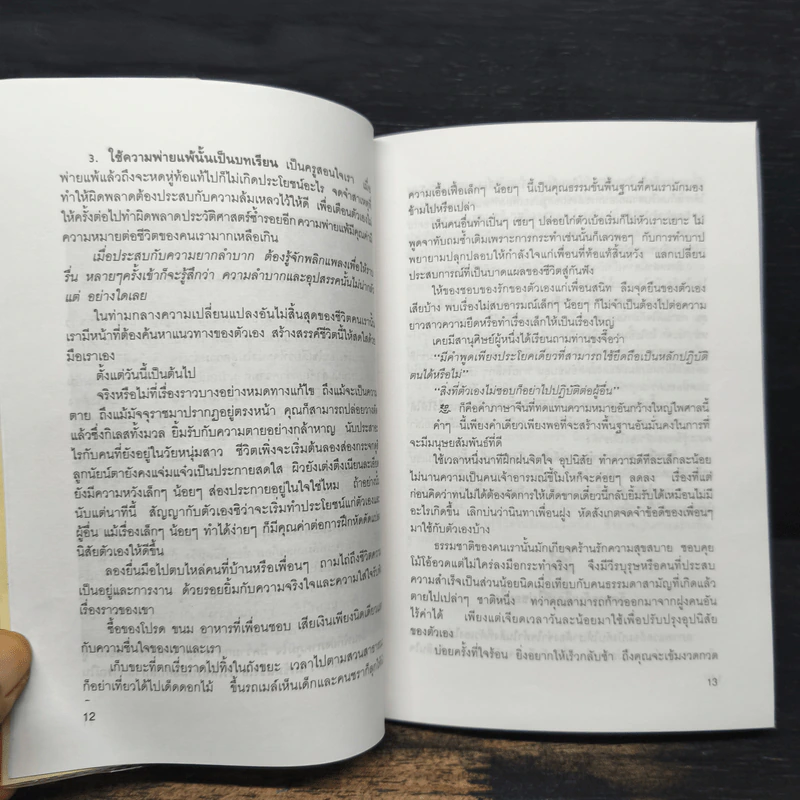 3. ใช้ความพ่ายแพ้นั้นเป็นบทเรียน เป็นครูสอนใจเรา เมื่อ
พ่ายแพ้แล้วถึงจะหดหู่ท้อแท้ไปก็ไม่เกิดประโยชน์อะไร จดจำสาเหตุที่
ทำให้ผิดพลาดต้องประสบกับความล้มเหลวไว้ให้ดี เพื่อเตือนตัวเองไม่
ให้ครั้งต่อไปทำผิดพลาดประวัติศาสตร์ซ้ำรอยอีกความพ่ายแพ้มีคุณค่ามี
ความหมายต่อชีวิตของคนเรามากเหลือเกิน
เมื่อประสบกับความยากลำบาก ต้องรู้จักพลิกแพลงเพื่อให้ราบ
รื่น หลายๆครั้งเข้าก็จะรู้สึกว่า ความลำบากและอุปสรรคนั้นไม่น่ากลัว
แต่ อย่างใดเลย
ในท่ามกลางความเปลี่ยนแปลงอันไม่สิ้นสุดของชีวิตคนเรานั้น
เรามีหน้าที่ต้องค้นหาแนวทางของตัวเอง สร้างสรรค์ชีวิตนี้ให้สดใสด้วย
มือเราเอง
ตั้งแต่วันนี้เป็นต้นไป
จริงหรือไม่ที่เรื่องราวบางอย่างหมดทางแก้ไข ถึงแม้จะเป็นความ
ตาย ถึงแม้มัจจุราชมาปรากฏอยู่ตรงหน้า คุณก็สามารถปล่อยวาง
แล้วซึ่งกิเลสทั้งมวล ยิ้มรับกับความตายอย่างกล้าหาญ นับประสา
ไรกับคนที่ยังอยู่ในวัยหนุ่มสาว ชีวิตเพิ่งจะเริ่มต้นลองส่องกระจกดู
ลูกนัยน์ตายังคงแจ่มแจ๋วเป็นประกายสดใส ผิวยังเต่งตึงเนียนละเอียด
ยังมีความหวังเล็กๆ น้อยๆ ส่องประกายอยู่ในใจใช่ไหม ถ้าอย่างนั้น
นับแต่นาทีนี้ สัญญากับตัวเองซิว่าจะเริ่มทำประโยชน์แก่ตัวเองและ
ผู้อื่น แม้เรื่องเล็กๆ น้อยๆ ทำได้ง่ายๆ ก็มีคุณค่าต่อการฝึกหัดดัดแปลง
นิสัยตัวเองให้ดีขึ้น
ลองยื่นมือไปตบไหล่คนที่บ้านหรือเพื่อนๆ ถามไถ่ถึงชีวิตความ
เป็นอยู่และการงาน ด้วยรอยยิ้มกับความจริงใจและความใส่ใจรับฟัง
เรื่องราวของเขา
ซื้อของโปรด ขนม อาหารที่เพื่อนชอบ เสียเงินเพียงนิดเดียว
กับความชื่นใจของเขาและเรา
เก็บขยะที่ตกเรี่ยราดไปทิ้งในถังขยะ เวลาไปตามสวนสาธารณะ
ก็อย่าเที่ยวได้ไปเด็ดดอกไม้ ขึ้นรถเมล์เห็นเด็กและคนชราก็ลุกให้
12
ความเอื้อเฟื้อเล็กๆ น้อยๆ นี้เป็นคุณธรรมขั้นพื้นฐานที่คนเรามักมอง
ข้ามไปหรือเปล่า
เห็นคนอื่นทำเปิ่นๆ เชยๆ ปล่อยไก่ตัวเบ้อเริ่มก็ไม่หัวเราะเยาะ ไม่
พูดจาทับถมซ้ำเติมเพราะการกระทำเช่นนั้นก็เลวพอๆ กับการทำบาป
พยายามปลุกปลอบให้กำลังใจแก่เพื่อนที่ท้อแท้สิ้นหวัง แลกเปลี่ยน
ประสบการณ์ที่เป็นบาดแผลของชีวิตสู่กันฟัง
ให้ของชอบของรักของตัวเองแก่เพื่อนสนิท ลืมจุดยืนของตัวเอง
เสียบ้าง พบเรื่องไม่สบอารมณ์เล็กๆ น้อยๆ ก็ไม่จำเป็นต้องไปต่อความ
ยาวสาวความยืดหรือทำเรื่องเล็กให้เป็นเรื่องใหญ่
เคยมีสานุศิษย์ผู้หนึ่งได้เรียนถามท่านขงจื๊อว่า
“มีคำพูดเพียงประโยคเดียวที่สามารถใช้ยึดถือเป็นหลักปฏิบัติ
ตนได้หรือไม่”
“สิ่งที่ตัวเองไม่ชอบก็อย่าไปปฏิบัติต่อผู้อื่น”
ก็คือคำภาษาจีนที่ทดแทนความหมายอันกว้างใหญ่ไพศาลนี้
คำๆ นี้เพียงคำเดียวเพียงพอที่จะสร้างพื้นฐานอันมั่นคงในการที่
จะมีมนุษยสัมพันธ์ที่ดี
ใช้เวลาหนึ่งนาทีฝึกฝนจิตใจ อุปนิสัย ทำความดีทีละเล็กละน้อย
ไม่นานความเป็นคนเจ้าอารมณ์ขี้โมโหก็จะค่อยๆ ลดลง เรื่องที่แต่
ก่อนคิดว่าทนไม่ได้ต้องจัดการให้เด็ดขาดเดี๋ยวนี้กลับยิ้มรับได้เหมือนไม่มี
อะไรเกิดขึ้น เลิกบ่นว่านินทาเพื่อนฝูง หัดสังเกตจดจำข้อดีของเพื่อนๆ
มาใช้กับตัวเองบ้าง
ธรรมชาติของคนเรานั้นมักเกียจคร้านรักความสุขสบาย ชอบคุย
โม้โอ้อวดแต่ไม่ใคร่ลงมือกระทำจริงๆ จึงมีวีรบุรุษหรือคนที่ประสบ
ความสำเร็จเป็นส่วนน้อยนิดเมื่อเทียบกับคนธรรมดาสามัญที่เกิดแล้ว
ตายไปเปล่าๆ ชาติหนึ่ง ทว่าคุณสามารถก้าวออกมาจากฝูงคนอัน
ไร้ค่าได้ เพียงแต่เจียดเวลาวันละน้อยมาใช้เพื่อปรับปรุงอุปนิสัย
ของตัวเอง
บ่อยครั้งที่ใจร้อน ยิ่งอยากให้เร็วกลับช้า ถึงคุณจะเข้มงวดกวด
13